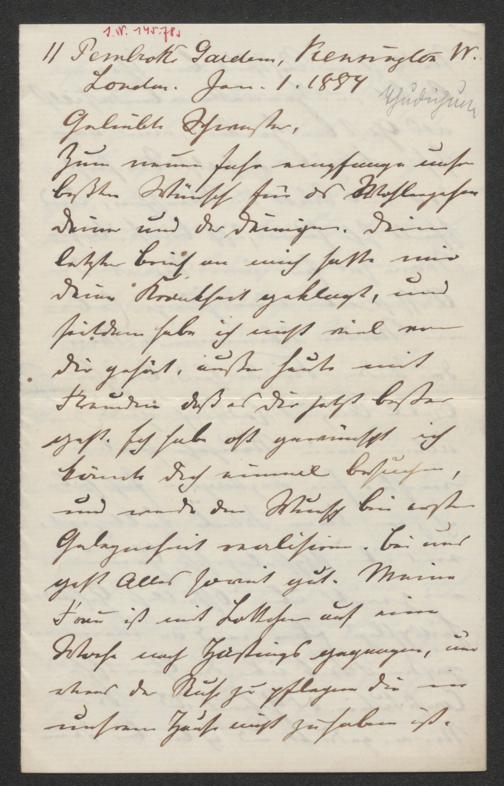 I.N. 145.781
11 Pembroke Gardens, Kensington W.
London. Jan. 1. 1884
Thudichum
Geliebte Schwester,
Zum neuen Jahr empfange unsre
beßten Wünsche für das Wohlergehen
Deiner und der Deinigen. Dein
letzter Brief an mich hatte mir
Deine Krankheit geklagt, und
seitdem habe ich nicht viel von
Dir gehört, außer heute mit
Freuden daß es Dir jetzt besser
geht. Ich habe oft gewünscht ich
könnte Dich einmal besuchen,
und werde den Wunsch bei erster
Gelegenheit realisiren. Bei uns
geht Alles soweit gut. Meine
Frau ist mit Lottchen auf eine
Woche nach Hastings gegangen, um
etwas der Ruhe zu pflegen die in
unserem Hause nicht zu haben ist.